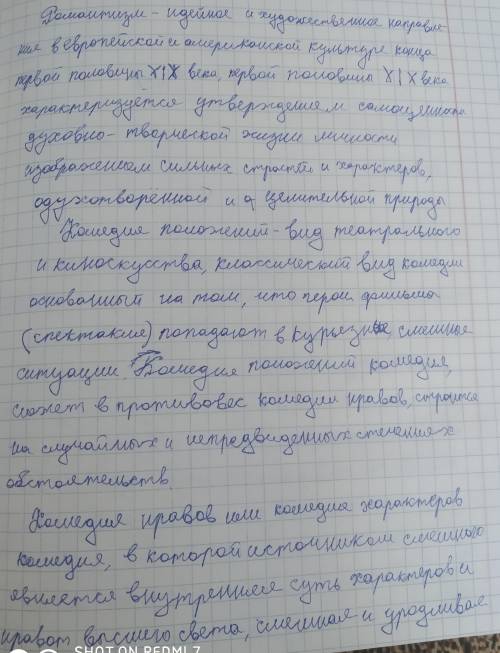 Романтизм - идейное и художественное направле
ние в европейской и американской культуре конца
первой половины XIX века, первой половины XIX века
характеризуется утверждением самоценности
духовно - творческой жизни личности
изображением сильных страстей и характеров,
одухотворенной и целительной природы
Комедия положений - вид театрального
и киноискусства, классический вид комедии
основанный на том, что герои фильма
(спектакля) попадают в курьезные, смешные
ситуации. Комедия положений комедия,
сюжет в противовес комедии нравов, строится
на случайных и непредвиденных стечениях
обстоятельств.
Комедия нравов или комедия характеров
комедия, в которой источником смешного
является внутренняя суть характеров и
нравов высшего света, смешная и уродливая
SHOT ON REDMI 7